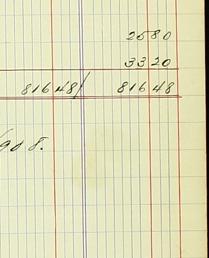 2580
3320
81648 81648
908.